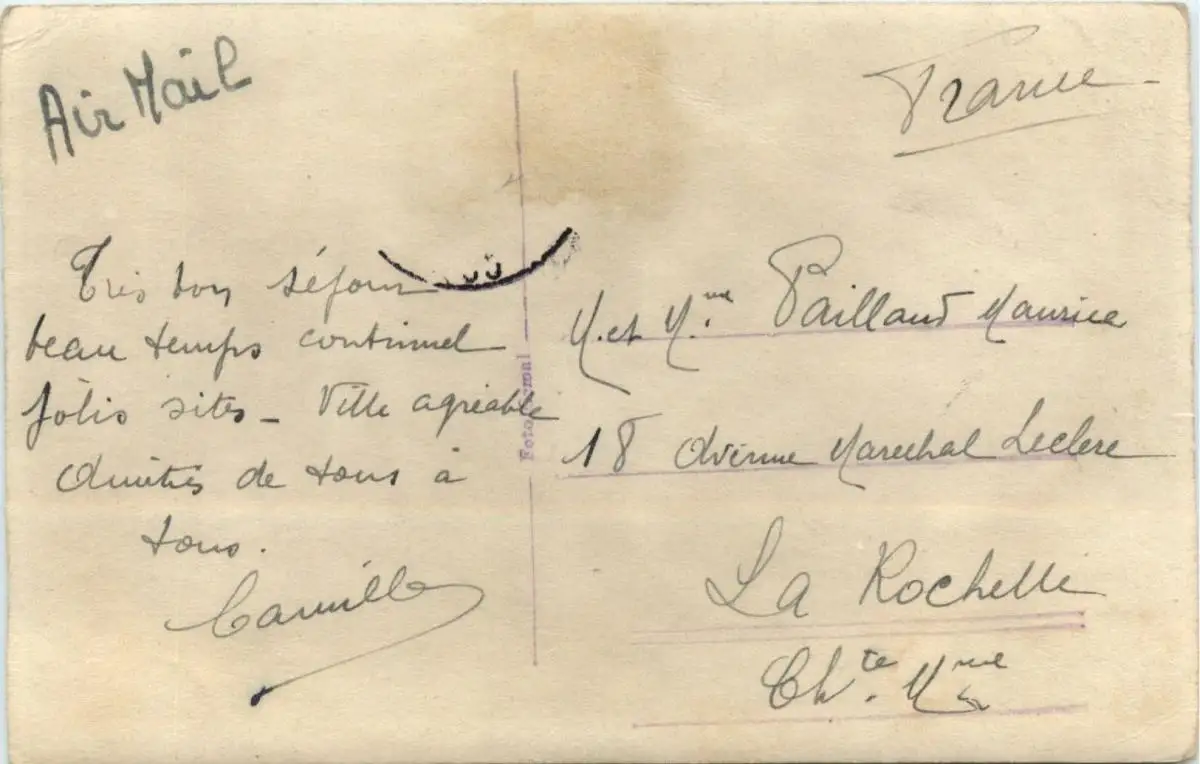 Air Mail
France
Très bon séjour
beau temps continuel
jolis sites - Ville agréable
Amitiés de tous à
tous.
Camille
M. et Mme Paillaud Maurice
18 Avenue Marechal Leclerc
La Rochelle
Chte. Mme
Foto